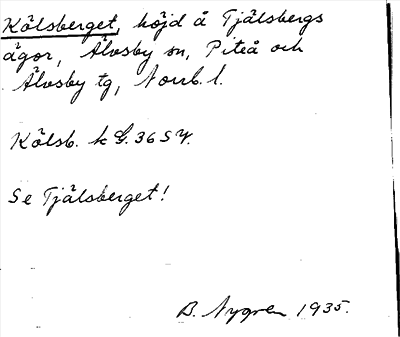 Kälsberget, höjd å Tjälsbergs
ägor, Älvsby sn, Piteå och
Älvsby tg, Norrb. l.
Kälsb. k G. 36 SV.
Se Tjälsberget!
B. Nygren 1935.